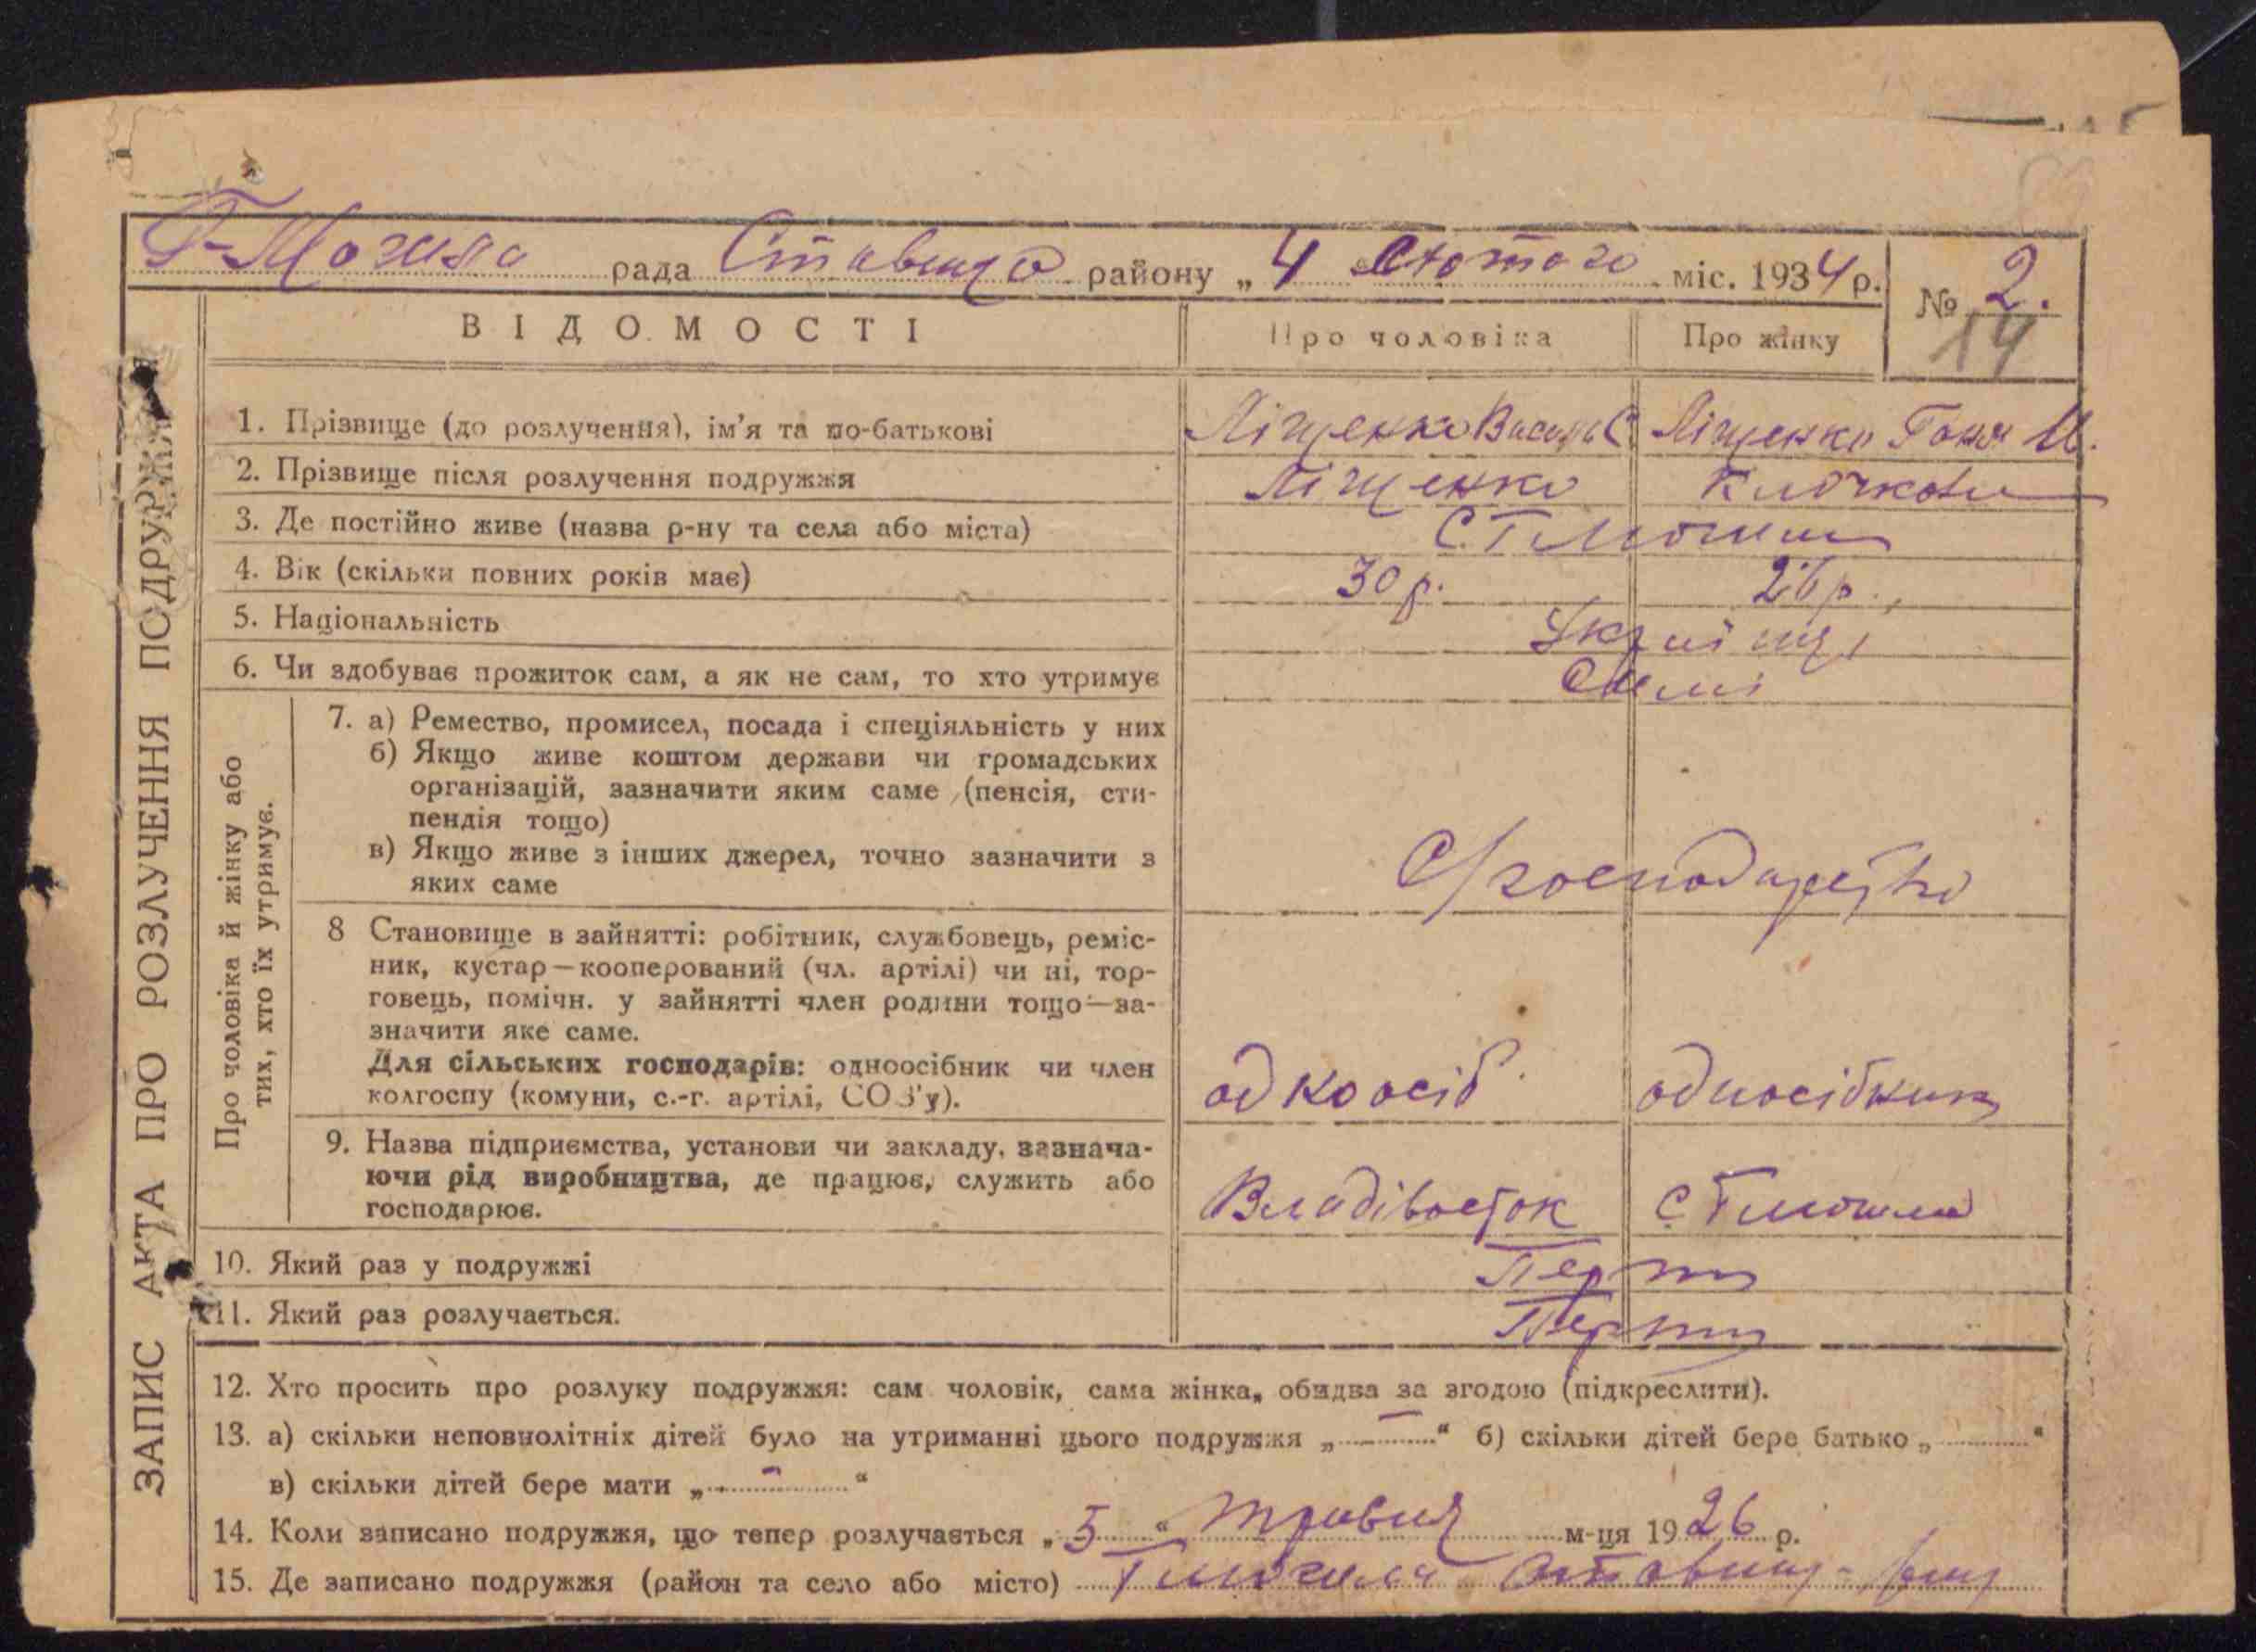 Г-Могила рада Ставища району „4 Лютого міс. 1934 р.
№ 2.
14
ВІДОМОСТІ Про чоловіка Про жінку
1. Прізвище (до розлучення), ім'я та по-батькові Ліщенко Василь С Ліщенко Ганя М.
2. Прізвище після розлучення подружжя Ліщенко
3. Де постійно живе (назва р-ну та села або міста) С. Г Могила
4. Вік (скільки повних років має) 30 р. 26 р.
5. Національність Українці
6. Чи здобуває прожиток сам, а як не сам, то хто утримує Самі
Про чоловіка й жінку або
тих, хто їх утримує.
7. а) Ремество, промисел, посада і спеціяльність у них
б) Якщо живе коштом держави чи громадських
організацій, зазначити яким саме (пенсія, сти-
пендія тощо)
в) Якщо живе з інших джерел, точно зазначити з
яких саме
С/господарство
8 Становище в зайнятті: робітник, службовець, реміс-
ник, кустар—кооперований (чл. артілі) чи ні, тор-
говець, помічн. у зайнятті член родини тощо—за-
значити яке саме.
Для сільських господарів: одноосібник чи член
колгоспу (комуни, с.-г. артілі, СОЗ'у).
одноосіб. одноосібник
9. Назва підприємства, установи чи закладу, зазнача-
ючи рід виробництва, де працює, служить або
господарює.
Владівосток с Г Могила
10. Який раз у подружжі Перший
11. Який раз розлучається. Перший
12. Хто просить про розлуку подружжя: сам чоловік, сама жінка, обидва за згодою (підкреслити).
13. а) скільки неповнолітніх дітей було на утриманні цього подружжя „ — “ б) скільки дітей бере батько „ “
в) скільки дітей бере мати „ — “
14. Коли записано подружжя, що тепер розлучається „ 5 “ травня м-ця 1926 р.
15. Де записано подружжя (район та село або місто) Г Могила Ставищ-
ЗАПИС АКТА ПРО РОЗЛУЧЕННЯ ПОДРУЖЖЯ